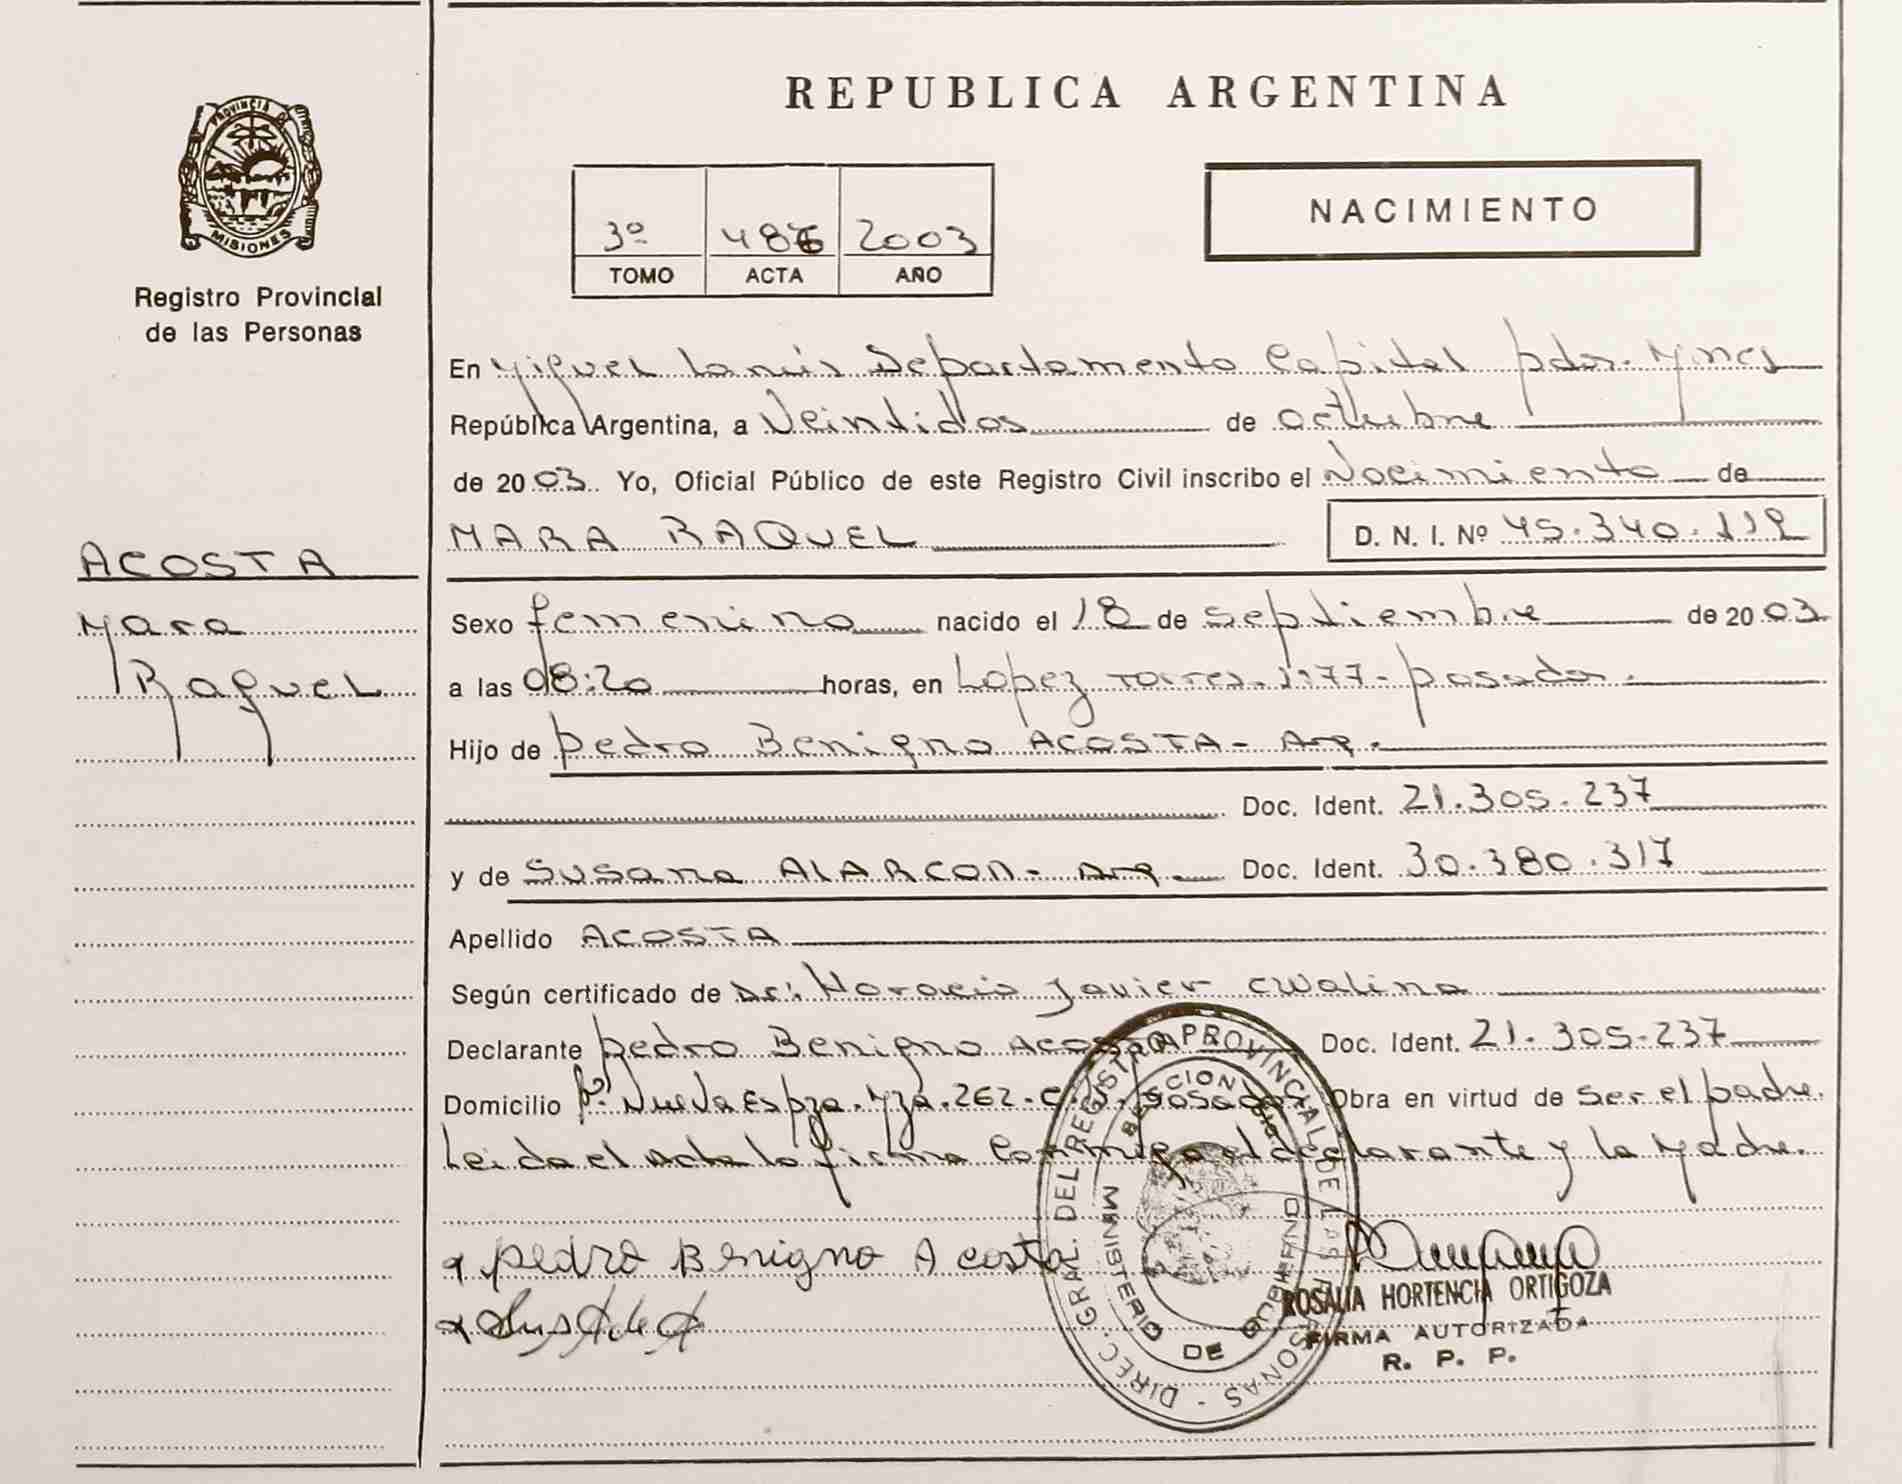 REPUBLICA ARGENTINA
PROVINCIA DE
MISIONES
Registro Provincial
de las Personas
3º 486 2003
TOMO ACTA AÑO
NACIMIENTO
En Miguel Lanús Departamento Capital pdas. Mnes
República Argentina, a Veintidos de octubre
de 2003. Yo, Oficial Público de este Registro Civil inscribo el Nacimiento de
MARA RAQUEL D. N. I. Nº 45.340.112
ACOSTA
Mara
Raquel
Sexo femenino nacido el 18 de septiembre de 2003
a las 08:20 horas, en Lopez Torres. 1177- posadas.
Hijo de pedro Benigno ACOSTA- Arg.
Doc. Ident. 21.305.237
y de SUSANA ALARCON- Arg. Doc. Ident. 30.380.317
Apellido ACOSTA
Según certificado de Dr: Horacio Javier Cwalina
Declarante pedro Benigno ACOSTA Doc. Ident. 21.305.237
Domicilio Bº. Nueva Espza. Mza. 262. C. 5. posadas Obra en virtud de ser el padre.
Leida el acta la firma conmigo el declarante y la Madre.
pedro Benigno Acosta
DIREC. GRAL. DEL REGISTRO PROVINCIAL DE LAS PERSONAS
MINISTERIO DE GOBIERNO
ROSALIA HORTENCIA ORTIGOZA
FIRMA AUTORIZADA
R. P. P.